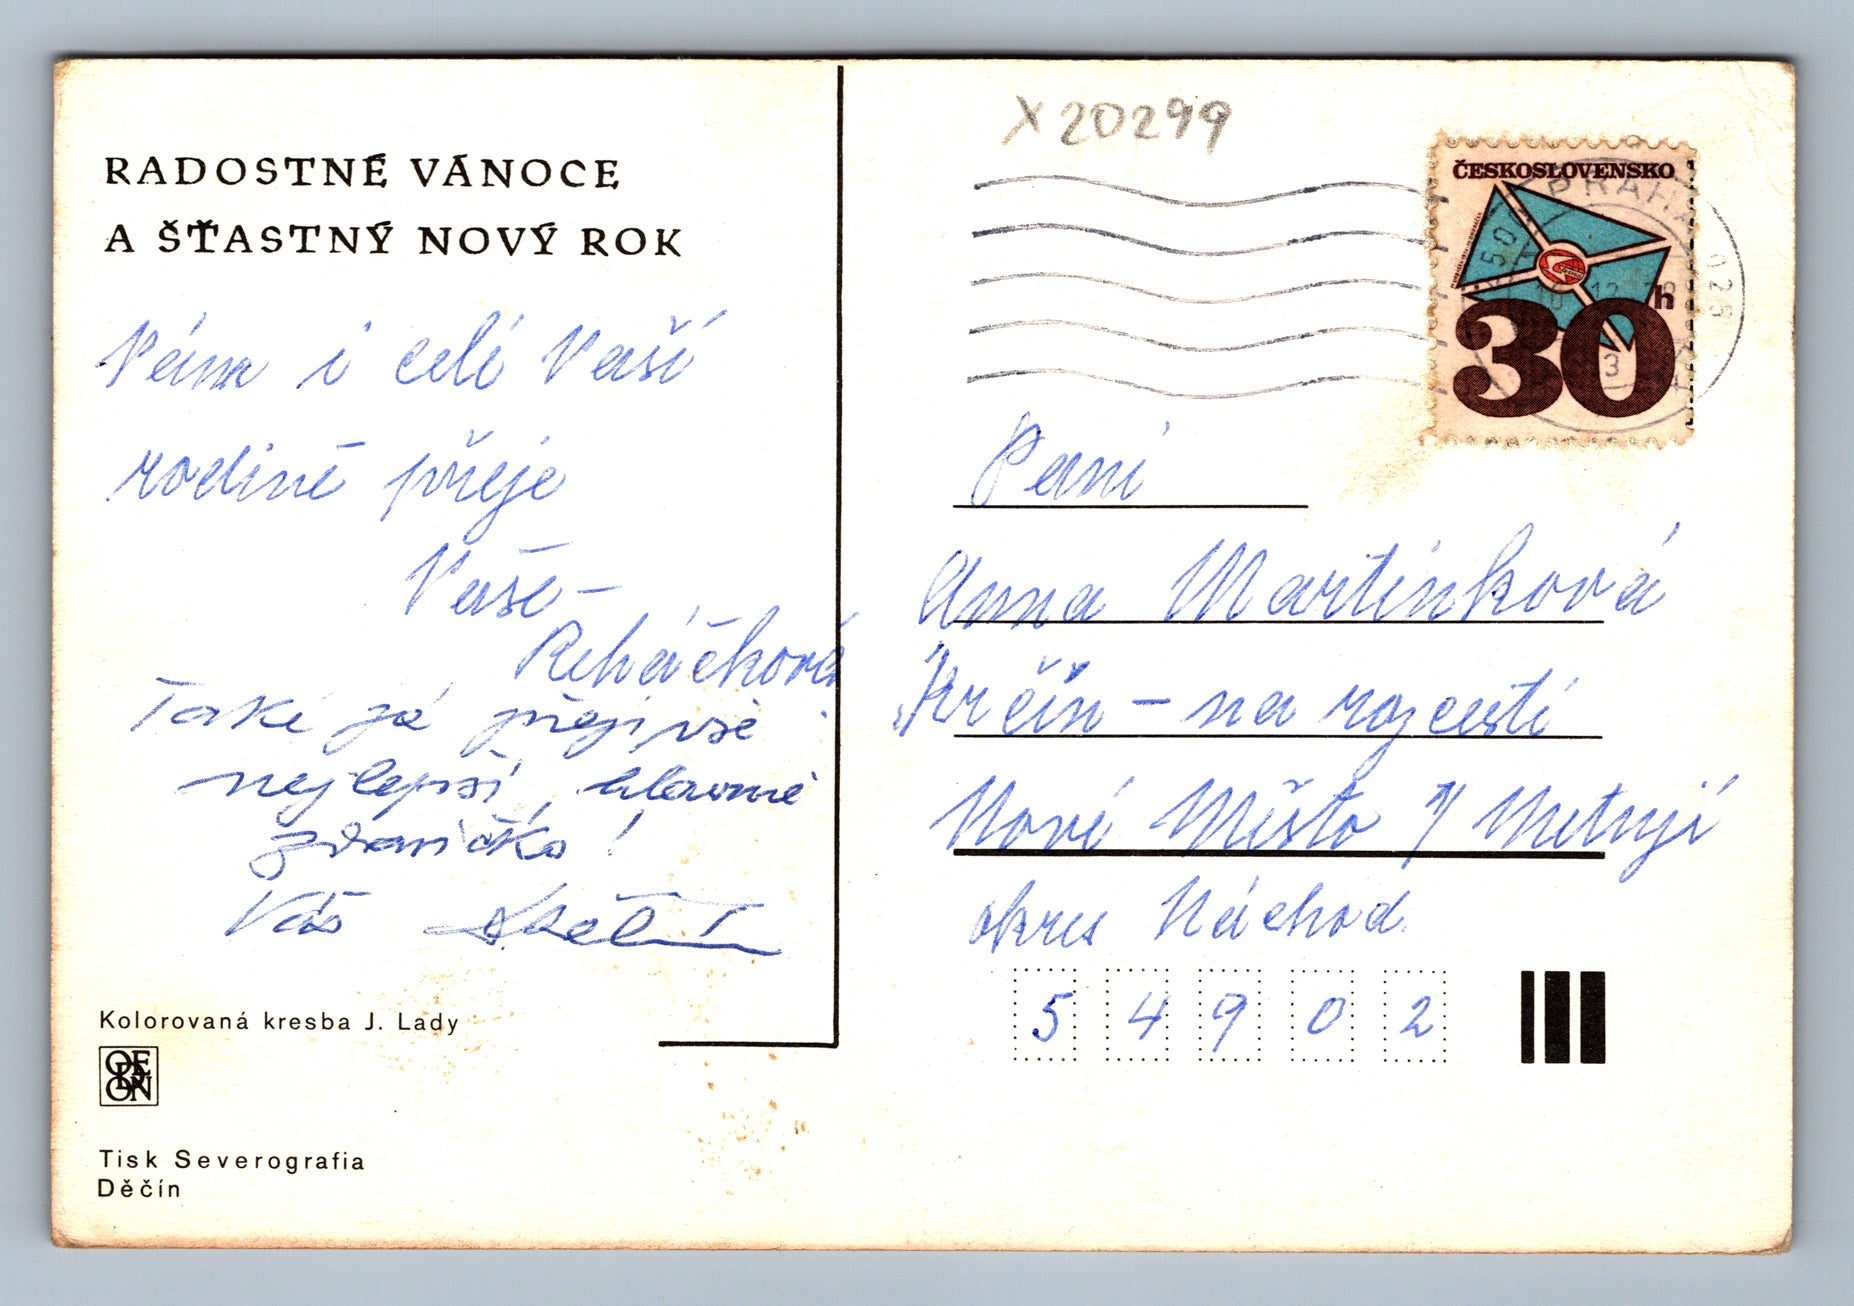 RADOSTNÉ VÁNOCE
A ŠŤASTNÝ NOVÝ ROK
Vám i celé Vaší
rodině přeje
Vaše -
Řeháčková
Také já přeji vše
nejlepší, hlavně
zdravíčko!
Váš
Kolorovaná kresba J. Lady
ODEON
Tisk Severografia
Děčín
X 20299
ČESKOSLOVENSKO
30 h
PRAHA 025
Paní
Anna Martinková
Krčín - na rozcestí
Nové Město n/ Metují
okres Náchod
5 4 9 0 2